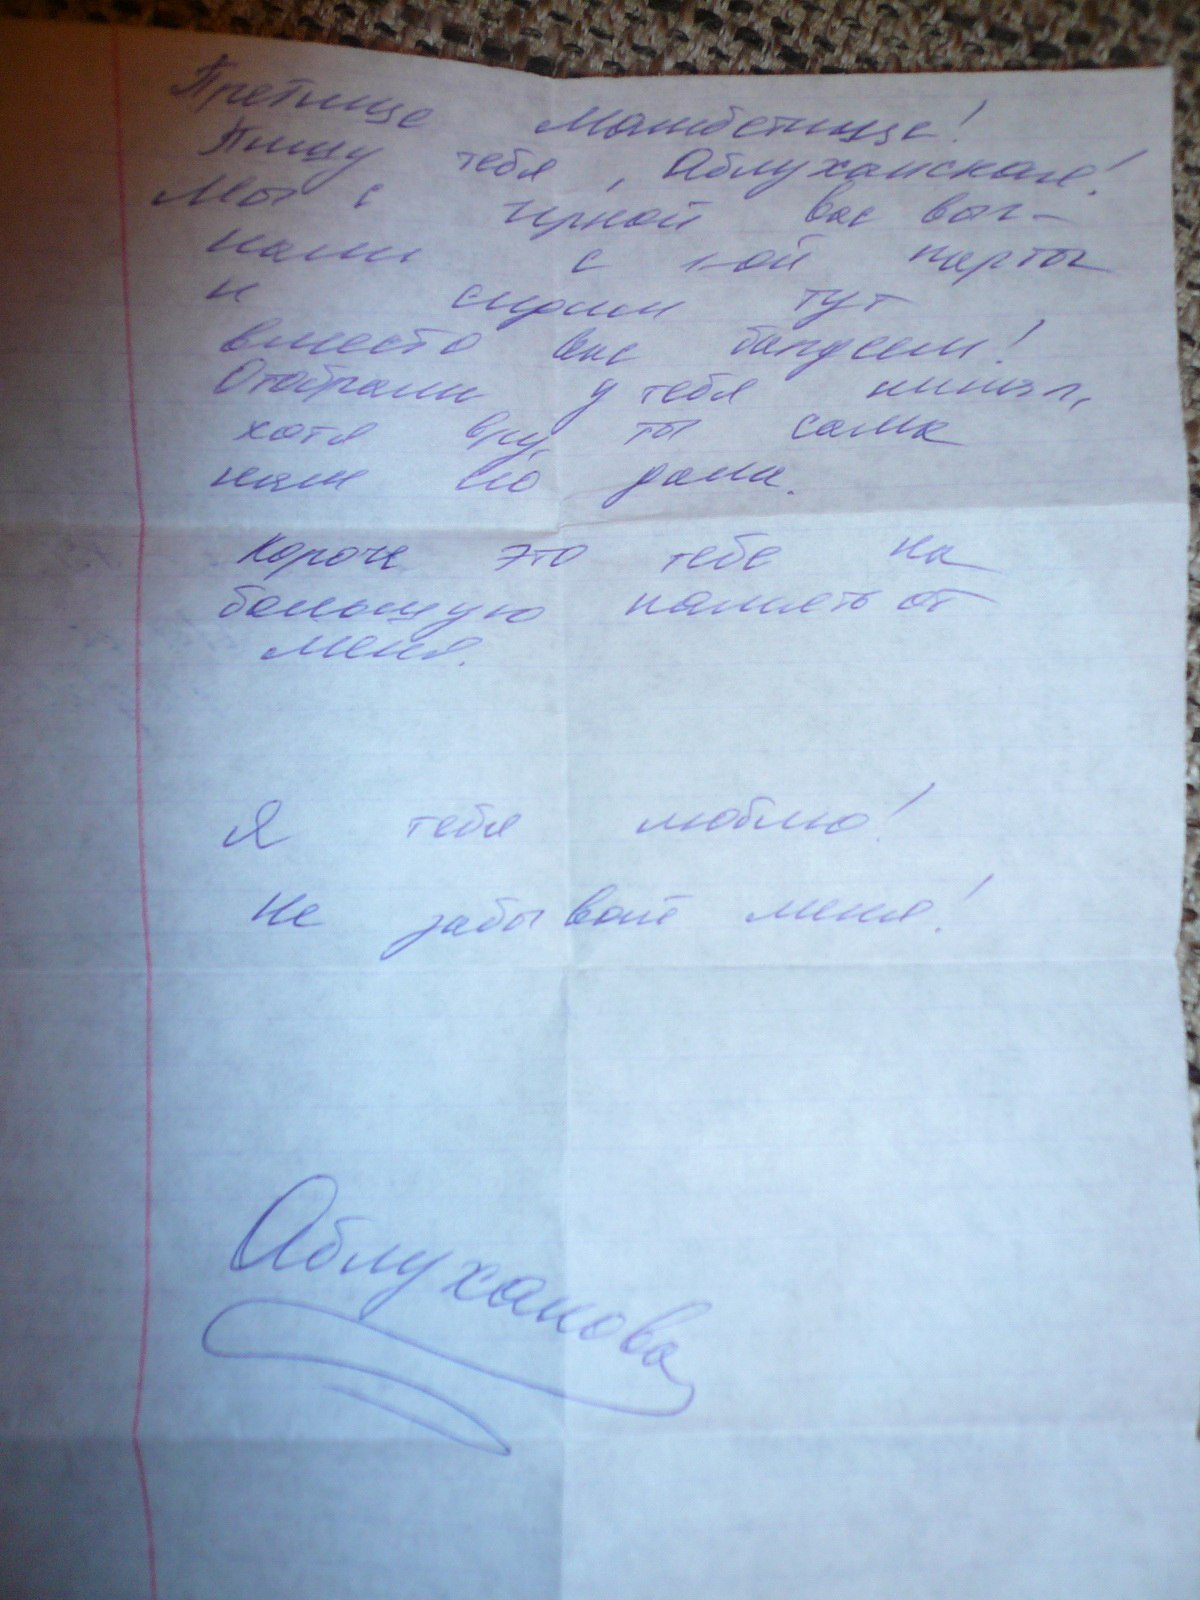 Претище Мамбетище!
Пишу тебя, Аблуханская!
Мы с Ирной вас выг-
нали с 1-ой парты
и сидим тут
вместо вас балдеем!
Отобрали у тебя
хотя вру, ты сама
нам его дала.
Короче это тебе на
большую память от
меня.
Я тебя люблю!
Не забывай меня!
Аблуханова